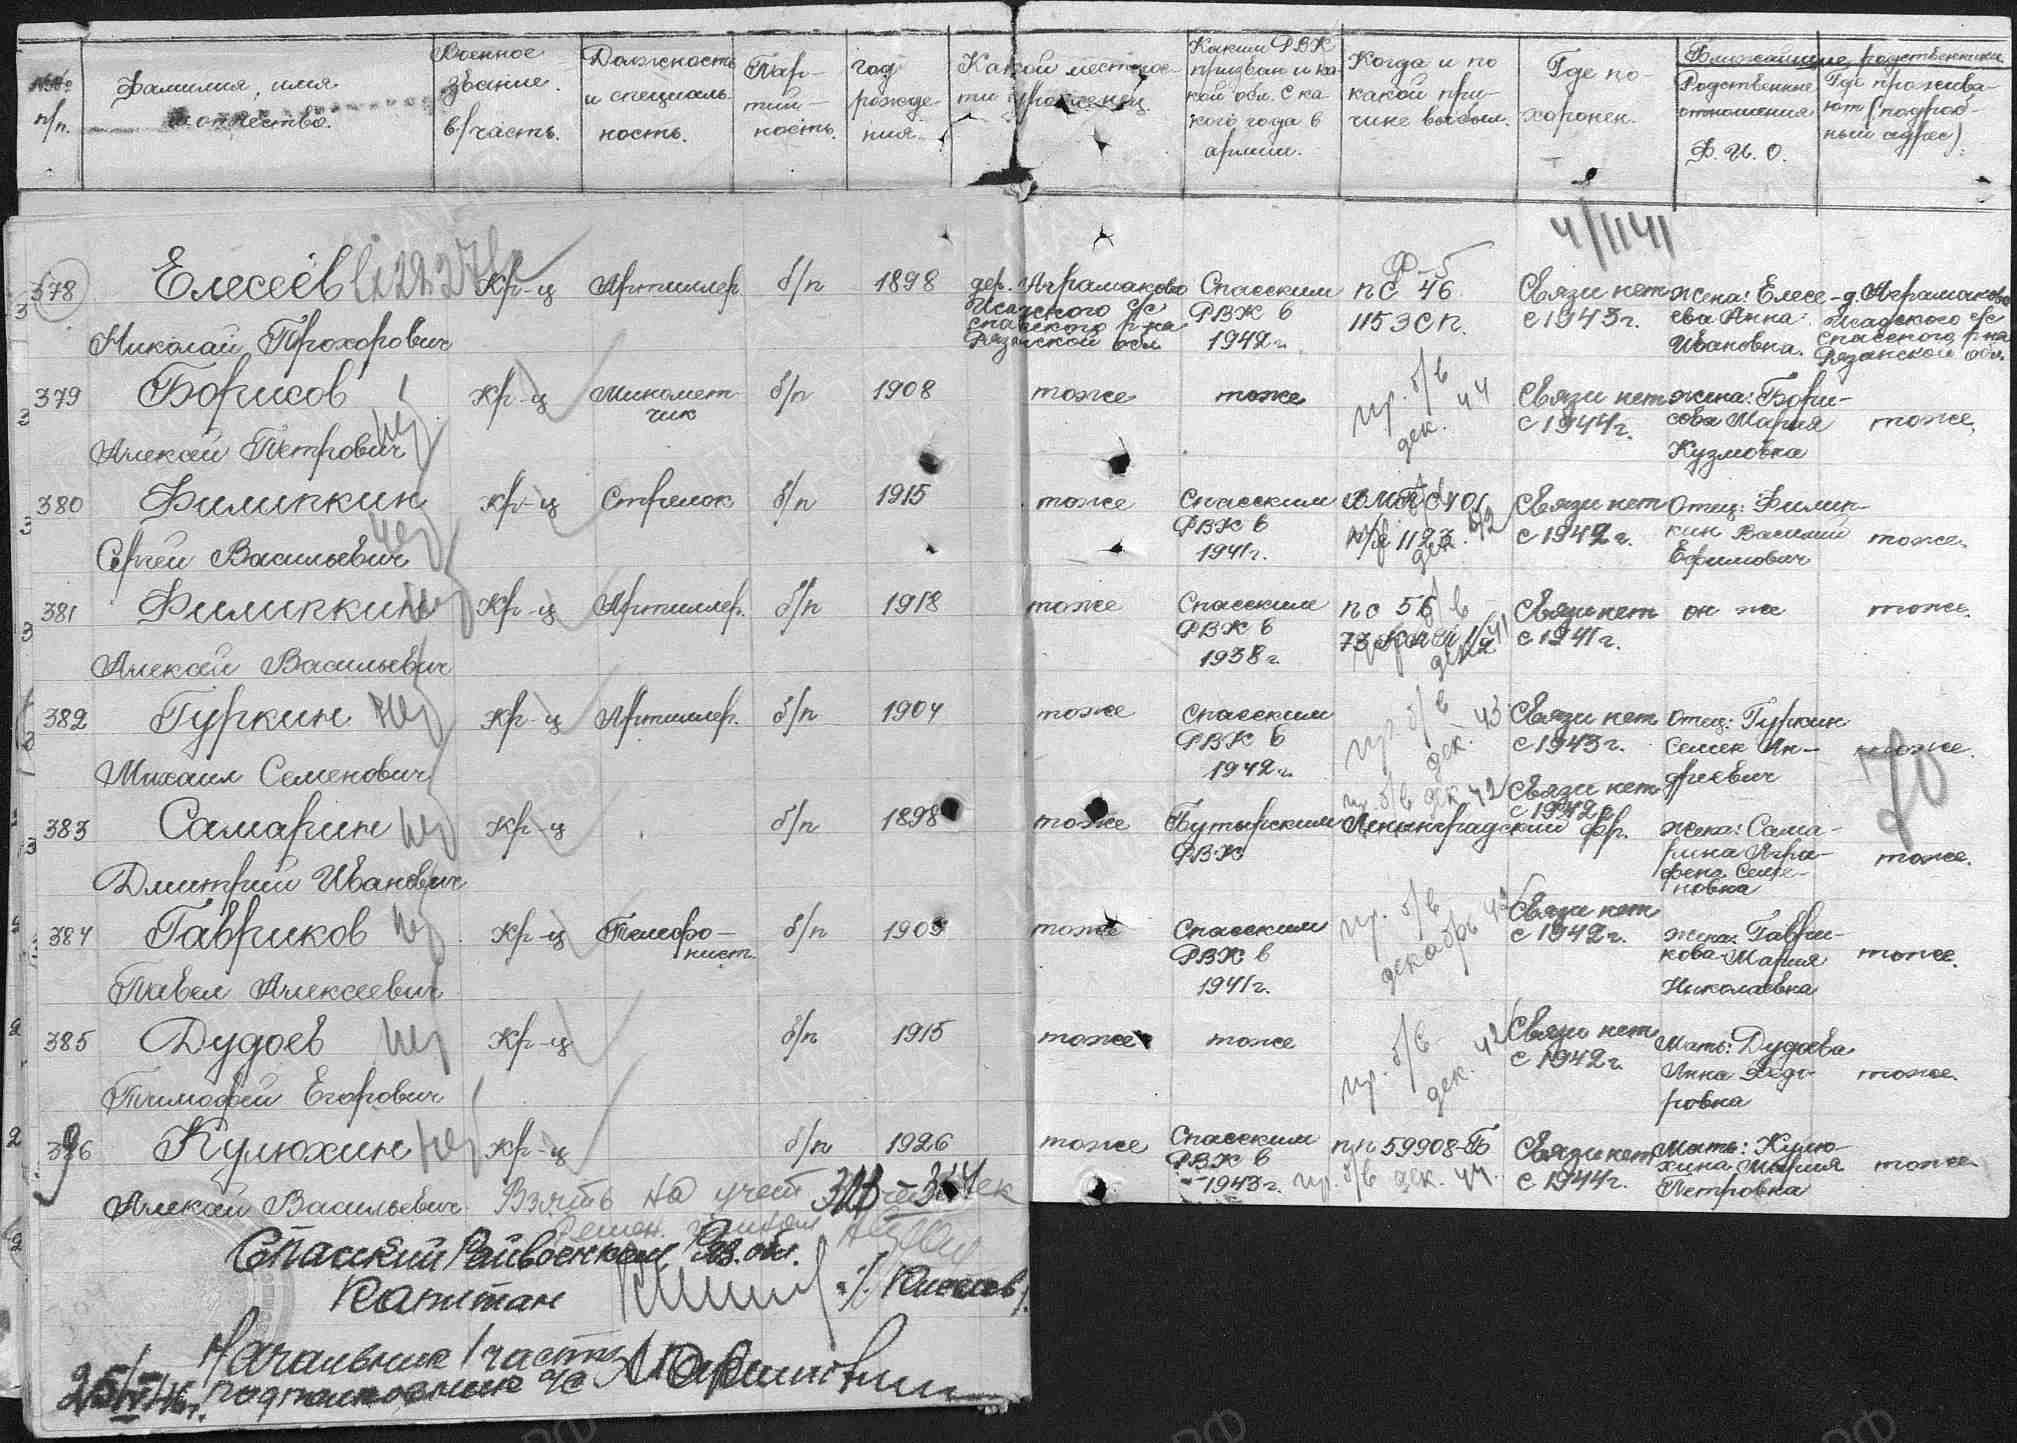 №№ п/п.
Фамилия, имя и отчество.
Военное звание. в/часть.
Должность и специальность.
Партийность.
год рождения.
Какой местности уроженец.
Каким РВК призван и какой обл. С какого года в армии.
Когда и по какой причине выбыл.
Где похоронен.
Ближайшие родственники
Родственные отношения Ф. И. О.
Где проживают (подробный адрес).
4/1141
378 Елесеев Кр-ц Артиллер б/п 1898 дер. Аграмаково Спасским пс 46 Связи нет жена: Елесе- д. Аграмаково
Исадского с/с РВК в 1153 СП. с 1943г. ева Анна Исадского с/с
Спасского р-на 1942 г. Ивановка. Спасского р-на
Николай Прохорович Рязанской обл. Рязанской обл.
379 Борисов Кр-ц Миномет- б/п 1908 тоже тоже пр. б/в Связи нет жена: Бори-
чик дек. 44 с 1944г. сова Мария тоже.
Алексей Петрович Кузмовна
380 Филипкин Кр-ц Стрелок б/п 1915 тоже Спасским Связи нет Отец: Филип-
РВК в с 1942г. кин Василий тоже.
Сергей Васильевич 1941г. Ефимович
381 Филипкин Кр-ц Артиллер. б/п 1918 тоже Спасским пс 56 Связи нет он же тоже.
РВК в с 1941г.
Алексей Васильевич 1938 г.
382 Гуркин Кр-ц Артиллер. б/п 1904 тоже Спасским пр. б/в Связи нет Отец: Гуркин
РВК в дек. 43 с 1943г. Семен Ан- тоже.
Михаил Семенович 1942г. дреевич
70
пр. б/в дек 42 Связи нет
с 1942г.
383 Самарин Кр-ц б/п 1898 тоже Бутырским Ленинградский фр. жена: Сама-
РВК рина Агра- тоже.
Дмитрий Иванович фена Семе-
новна
384 Гавриков Кр-ц Телефо- б/п 1905 тоже Спасским пр. б/в Связи нет жена: Гаври-
нист. РВК в декабрь 42 с 1942г. кова Мария тоже.
Павел Алексеевич 1941г. Николаевна
385 Дудоев Кр-ц б/п 1915 тоже тоже пр. б/в Связи нет Мать: Дудоева
дек. 42 с 1942г. Анна Федо- тоже.
Тимофей Егорович ровна
386 Кулюхин Кр-ц б/п 1926 тоже Спасским пп 59908-Б Связи нет Мать: Кулю-
РВК в с 1944г. хина Мария тоже
Алексей Васильевич 1943г. пр. б/в дек. 44. Петровна
Взять на учет
Спасский Райвоенком Ряз. обл.
Капитан /Киселев/.
Начальник 1 части
25/IV/46г. подполковник а/с